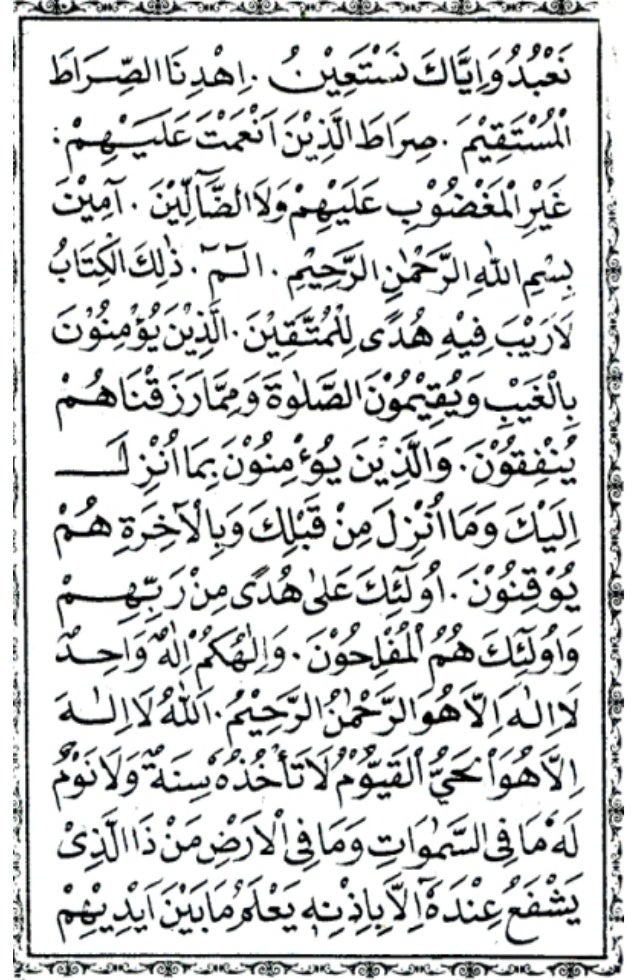 نَعْبُدُ وَاِيَّاكَ نَسْتَعِيْنُ . اِهْدِنَا الصِّرَاطَ
الْمُسْتَقِيْمَ . صِرَاطَ الَّذِيْنَ اَنْعَمْتَ عَلَيْهِمْ :
غَيْرِ الْمَغْضُوْبِ عَلَيْهِمْ وَلَا الضَّآلِّيْنَ . آمِيْنَ
بِسْمِ اللهِ الرَّحْمٰنِ الرَّحِيْمِ . الٓـمٓ . ذٰلِكَ الْكِتَابُ
لَا رَيْبَ فِيْهِ هُدًى لِلْمُتَّقِيْنَ . الَّذِيْنَ يُؤْمِنُوْنَ
بِالْغَيْبِ وَيُقِيْمُوْنَ الصَّلٰوةَ وَمِمَّا رَزَقْنَاهُمْ
يُنْفِقُوْنَ . وَالَّذِيْنَ يُؤْمِنُوْنَ بِمَا اُنْزِلَ
اِلَيْكَ وَمَا اُنْزِلَ مِنْ قَبْلِكَ وَبِالْآخِرَةِ هُمْ
يُوْقِنُوْنَ . اُولٰٓئِكَ عَلٰى هُدًى مِنْ رَبِّهِمْ
وَاُولٰٓئِكَ هُمُ الْمُفْلِحُوْنَ . وَاِلٰهُكُمْ اِلٰهٌ وَاحِدٌ
لَا اِلٰهَ اِلَّا هُوَ الرَّحْمٰنُ الرَّحِيْمُ . اَللهُ لَا اِلٰهَ
اِلَّا هُوَ الْحَيُّ الْقَيُّوْمُ لَا تَأْخُذُهُ سِنَةٌ وَلَا نَوْمٌ
لَهُ مَا فِى السَّمٰوَاتِ وَمَا فِى الْاَرْضِ مَنْ ذَا الَّذِىْ
يَشْفَعُ عِنْدَهُ اِلَّا بِاِذْنِهِ يَعْلَمُ مَا بَيْنَ اَيْدِيْهِمْ